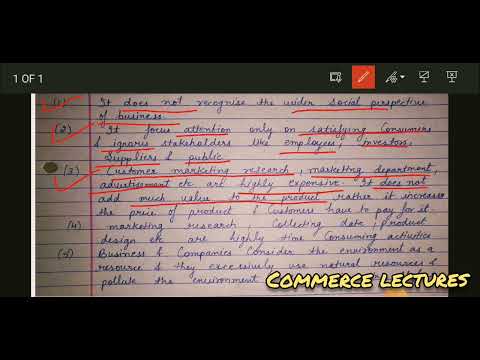 1 OF 1
(1) It does not recognise the wider social perspective
of business.
(2) It focus attention only on satisfying consumers
& ignores stakeholders like employees, investors,
suppliers & public
(3) Customer marketing research, marketing department,
advertisement etc are highly expensive. It does not
add much value to the product rather it increase
the price of product & customers have to pay for it.
(4) marketing research, Collecting data, product
design etc are highly time consuming activities
(5) Business & Companies Consider the environment as a
resource & they excessively use natural resources &
pollute the environment
COMMERCE LECTURES